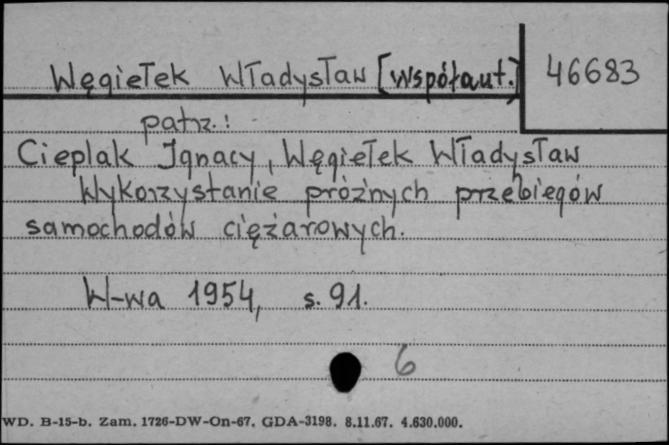 Węgiełek Władysław [współaut.] 46683
patrz.:
Cieplak Ignacy, Węgiełek Władysław
Wykorzystanie próżnych przebiegów
samochodów ciężarowych.
W-wa 1954, s. 91.
6
WD. B-15-b. Zam. 1726-DW-On-67. GDA-3198. 8.11.67. 4.630.000.